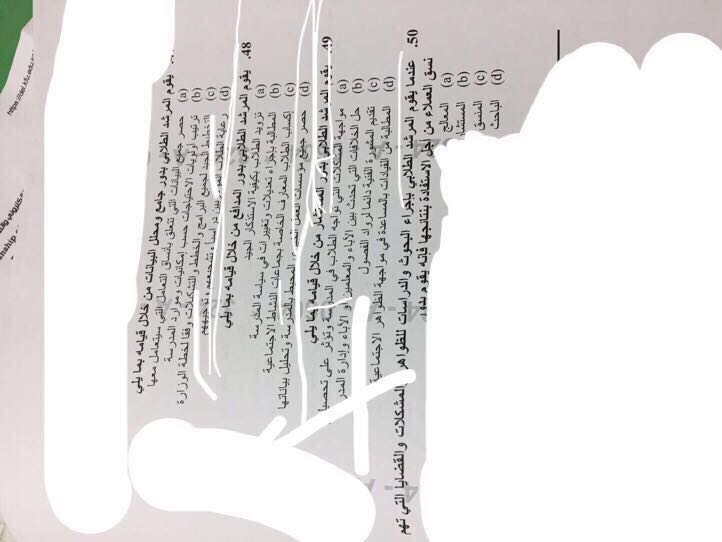 يقوم المرشد الطلابي بدور جامع ومحلل البيانات من خلال قيامه بما يلي
(a) حصر جميع البيانات التي تتعلق بأنساق التعامل التي سيتعامل معها
(b) ترتيب أولويات الاحتياجات حسب إمكانيات وموارد المدرسة
(c) التخطيط الجيد لجميع البرامج والخطط والتشكيلات وفقا لخطة الوزارة
(d) رعاية الطلاب
48. يقوم المرشد الطلابي بدور المدافع من خلال قيامه بما يلي
(a) تزويد الطلاب بكيفية الاستذكار الجيد
(b) المطالبة بإجراء تعديلات وتغييرات في سياسة المدرسة
(c) إكساب الطلاب المعارف الخاصة بجماعات النشاط الاجتماعية
(d) حصر جميع مؤسسات المحيط بالمدرسة وتحليل بياناتها
49. يقوم المرشد الطلابي من خلال قيامه بما يلي
(a) مواجهة المشكلات التي تواجه الطلاب في المدرسة وتؤثر على
(b) حل الخلافات التي تحدث بين الآباء والمعلمين أو الآباء وإدارة
(c) تقديم المشورة الفنية دائما لرواد الفصول
(d) المطالبة القيادات بالمساعدة في مواجهة الظواهر الاجتماعية
50. عندما يقوم المرشد الطلابي بإجراء البحوث والدراسات للظواهر والمشكلات والقضايا التي تهم
نسق العملاء من أجل الاستفادة بنتائجها فإنه يقوم بدور
(a) المعالج
(b)
(c) المنسق
(d) الباحث
https://del.kfu.edu